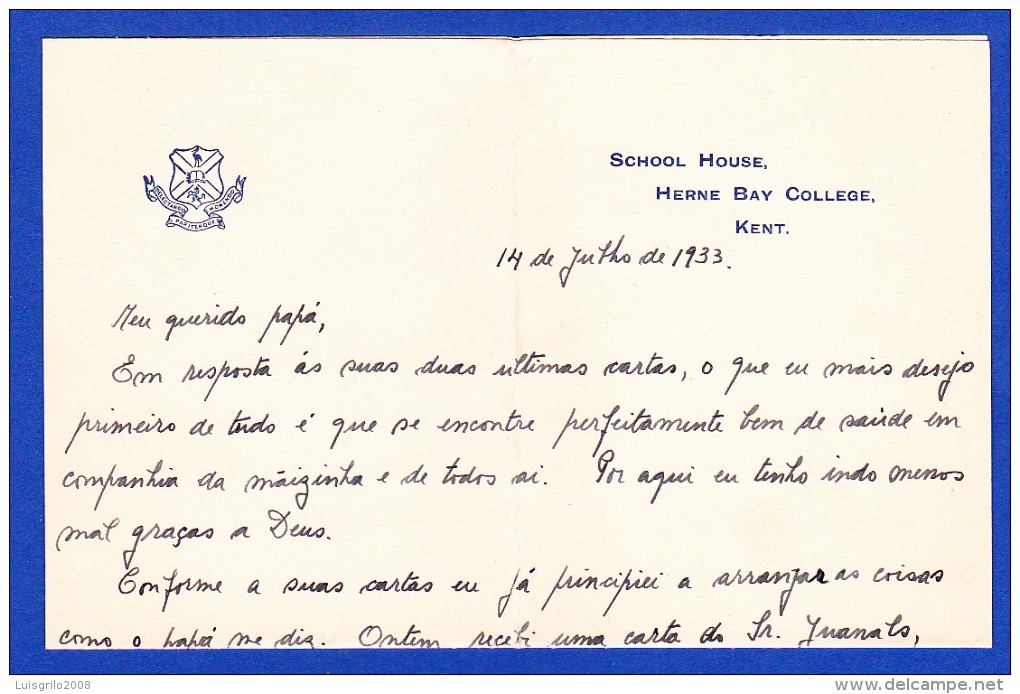 DELECTANDO PARITERQUE MONENDO
SCHOOL HOUSE,
HERNE BAY COLLEGE,
KENT.
14 de Julho de 1933.
Meu querido papá,
Em resposta ás suas duas ultimas cartas, o que eu mais desejo
primeiro de tudo é que se encontre perfeitamente bem de saúde em
companhia da mãizinha e de todos ai. Por aqui eu tenho indo menos
mal graças a Deus.
Conforme a suas cartas eu já principiei a arranjar as coisas
como o papá me diz. Ontem recebi uma carta do Sr.
Luisgrilo2008
delcampe.net